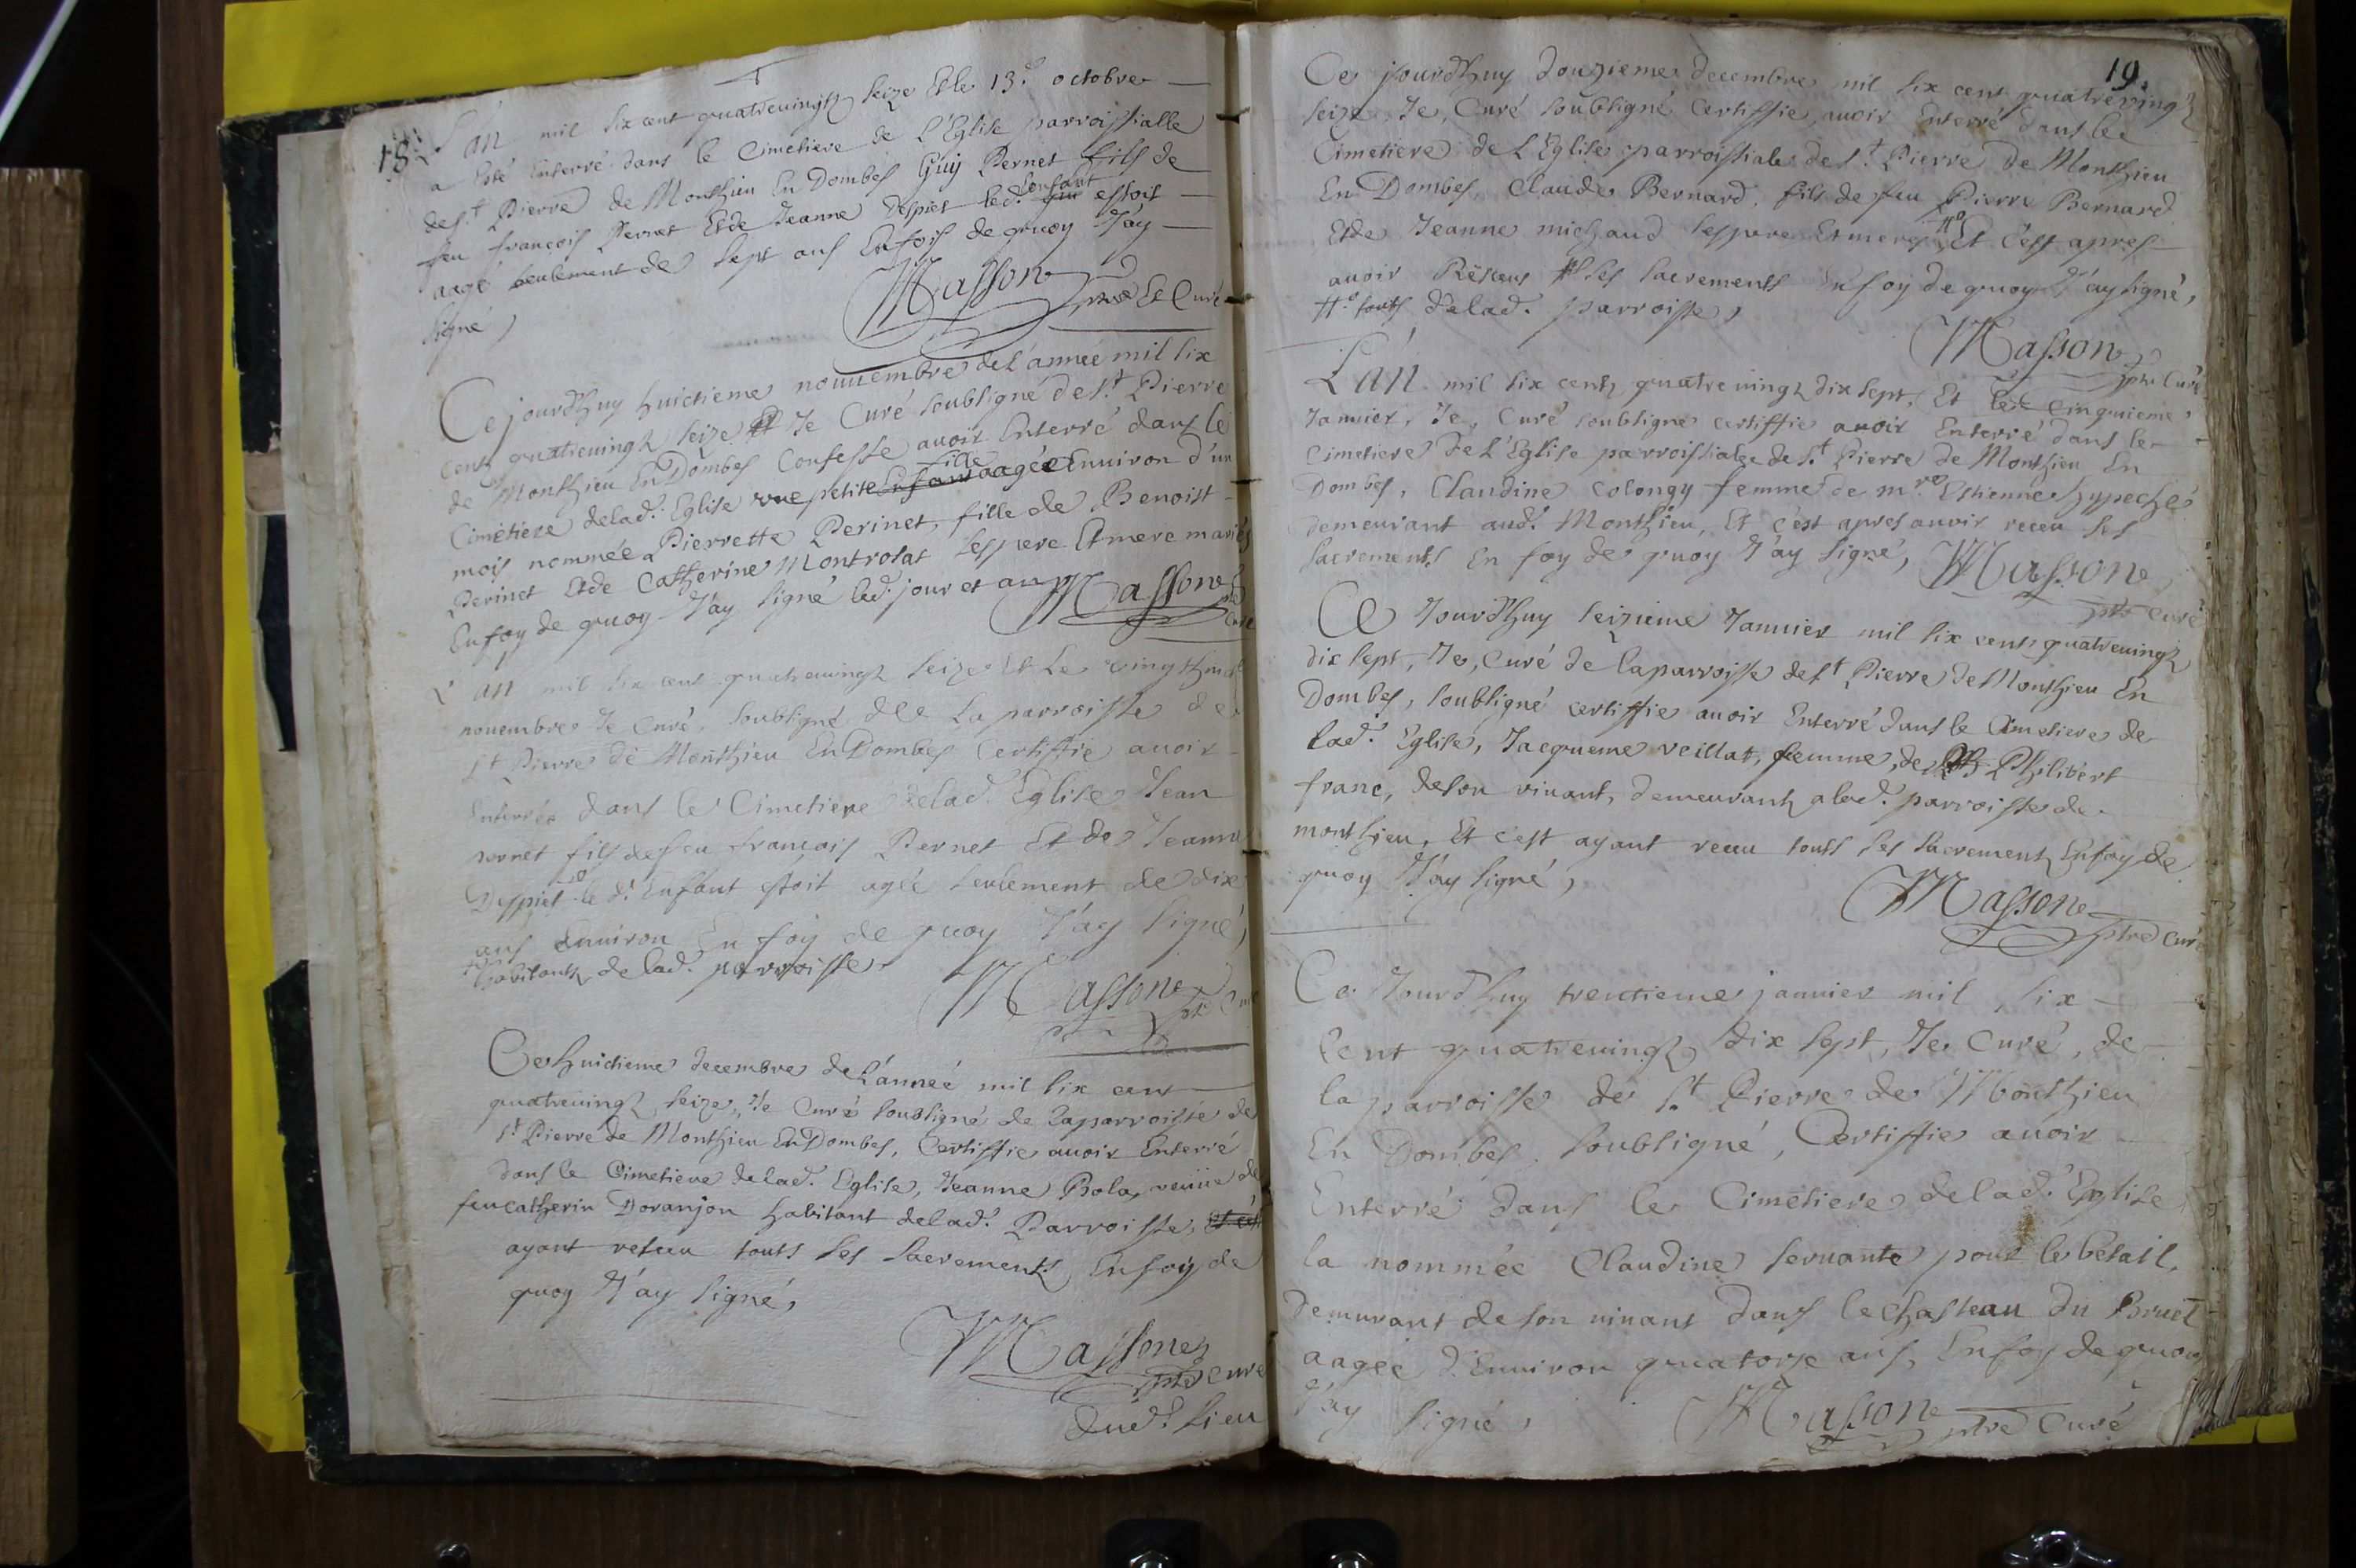 18.
L'an mil six cent quatreuingtz seize Et le 13.e octobre
a esté enterré dans le Cimetiere de L'Eglise parroissialle
de s.t Pierre de Monthieu En Dombes Guy Pernet fils de
feu françois Pernet Et de Jeanne Despiet led. qui l'enfant estoit
aagé seulement de sept ans En foÿ de quoy J'ay
signé,
Masson ptre Et Curé
Ce jourd'huy huictieme nouuembre de L'année mil six
cent quatreuingtz seize Et Je Curé soubsigné de s.t Pierre
de Monthieu En Dombes Confesse auoir Enterré dans le
Cimetiere de lad. Eglise vne petite Enfant fille aagée Enuiron d'un
mois nommée Pierrette Perinet, fille de Benoist
Perinet Et de Catherine Montrosat ses pere Et mere mariés
En foy de quoy J'ay signé led. jour et an Masson ptre
Curé
L'an mil six cent quatreuingtz seize Et Le vingthuict
nouembre Je Curé soubsigné de La parroisse de
s.t Pierre de Monthieu En Dombes Certiffie auoir
Enterré dans le Cimetiere de lad. Eglise Jean
pernet fils de feu françois Pernet Et de Jeanne
Dyspiet le d. Enfant estoit agée seulement de dix
ans Enuiron En foÿ de quoy J'ay signé,
habitants de lad. parroisse
Masson ptre Curé
Ce huictieme decembre de L'année mil six cent
quatreuingtz seize, Je Curé soubsigné de la parroisse de
s.t Pierre de Monthieu En Dombes, Certiffie auoir Enterré
dans le Cimetiere de lad. Eglise, Jeanne Bola, veuue de
feu catherin Doranjon habitant de lad. Parroisse, Et c'est
ayant resceu touts ses sacrements En foy de
quoy J'ay signé,
Masson
ptre curé
dud. lieu
19.
Ce jourd'huy douzieme decembre mil six cent quatrevingtz
seize Je, Curé soubsigné Certiffie auoir Enterré dans le
Cimetiere de L'Eglise parroissiale de s.t Pierre de Monthieu
En Dombes, Claude Bernard, fils de feu Pierre Bernard
Et de Jeanne michaud ses pere Et mere Et c'est apres
auoir Resceus ses sacrements En foy de quoy J'ay signé,
touts de lad. parroisse,
Masson
ptre Curé
L'an mil six centz quatreuingtz dix sept, Et le Cinquieme
Januier, Je, Curé soubsigné certiffie auoir Enterré dans le
Cimetiere de L'Eglise parroissiale de s.t Pierre de Monthieu En
Dombes, Claudine Colongy femme de m.re Estienne hypeché
demeurant aud. Monthieu, Et c'est apres auoir receu ses
sacrements En foy de quoy J'ay signé, Masson
ptre curé
Ce Jourd'huy seizieme Januier mil six cents quatreuingtz
dix sept, Je, Curé de la parroisse de s.t Pierre de Monthieu En
Dombes, soubsigné certiffie auoir Enterré dans le Cimetiere de
lad. Eglise, Jacqueme veillat, femme, de Philibert
franc, de son viuant, demeurantz a lad. parroisse de
monthieu, Et c'est ayant receu touts ses sacrementz En foy de
quoy J'ay signé,
Masson
ptre Curé
Ce Jourd'huy trentieme januier mil six
Cent quatreuingtz dix sept, Je, Curé, de
la parroisse de s.t Pierre de Monthieu
En Dombes soubsigné, Certiffie auoir
Enterré dans le Cimetiere de lad. Eglise
la nommée Claudine seruante pour le betail,
Demurant de son uiuant dans le chasteau du Bruet
aagée d'Enuiron quatorze ans, En foy de quoy
J'ay signé,
Masson ptre Curé